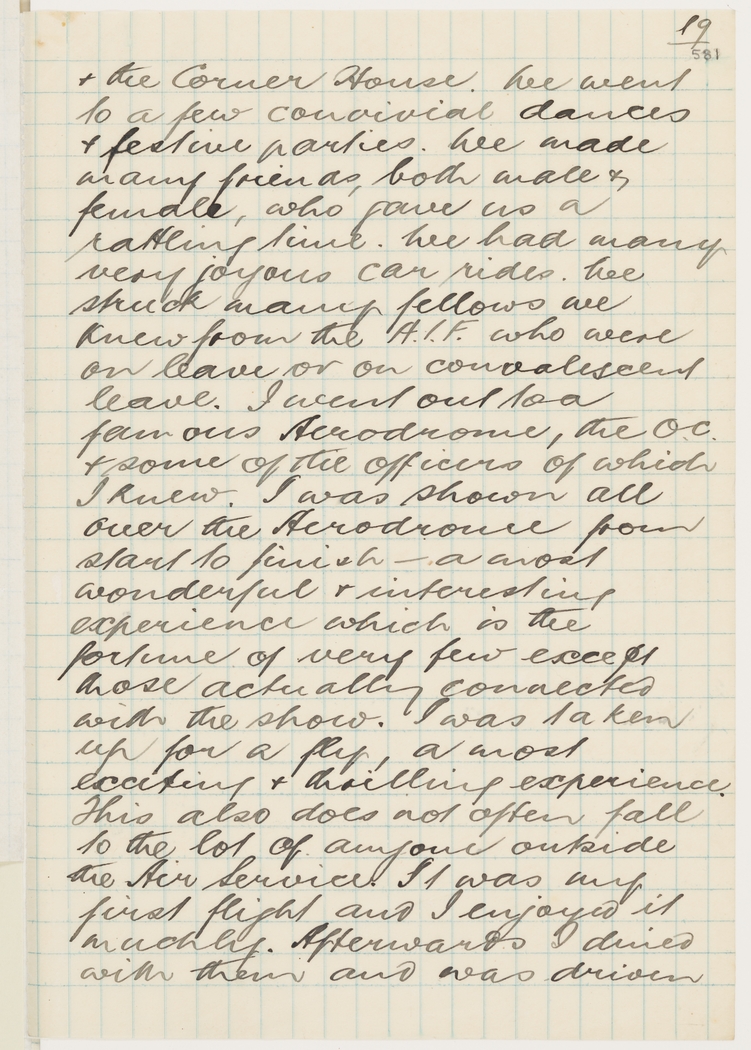 19
581
+ the Corner House. We went
to a few convivial dances
+ festive parties. We made
many friends, both male &
female, who gave us a
rattling time. We had many
very joyous car rides. We
struck many fellows we
knew from the A.I.F. who were
on leave or on convalescent
leave. I went out to a
famous Aerodrome, the O.C.
+ some of the officers of which
I knew. I was shown all
over the Aerodrome from
start to finish — a most
wonderful + interesting
experience which is the
fortune of very few except
those actually connected
with the show. I was taken
up for a fly, a most
exciting + thrilling experience.
This also does not often fall
to the lot of anyone outside
the Air Service. It was my
first flight and I enjoyed it
muchly. Afterwards I dined
with them and was driven